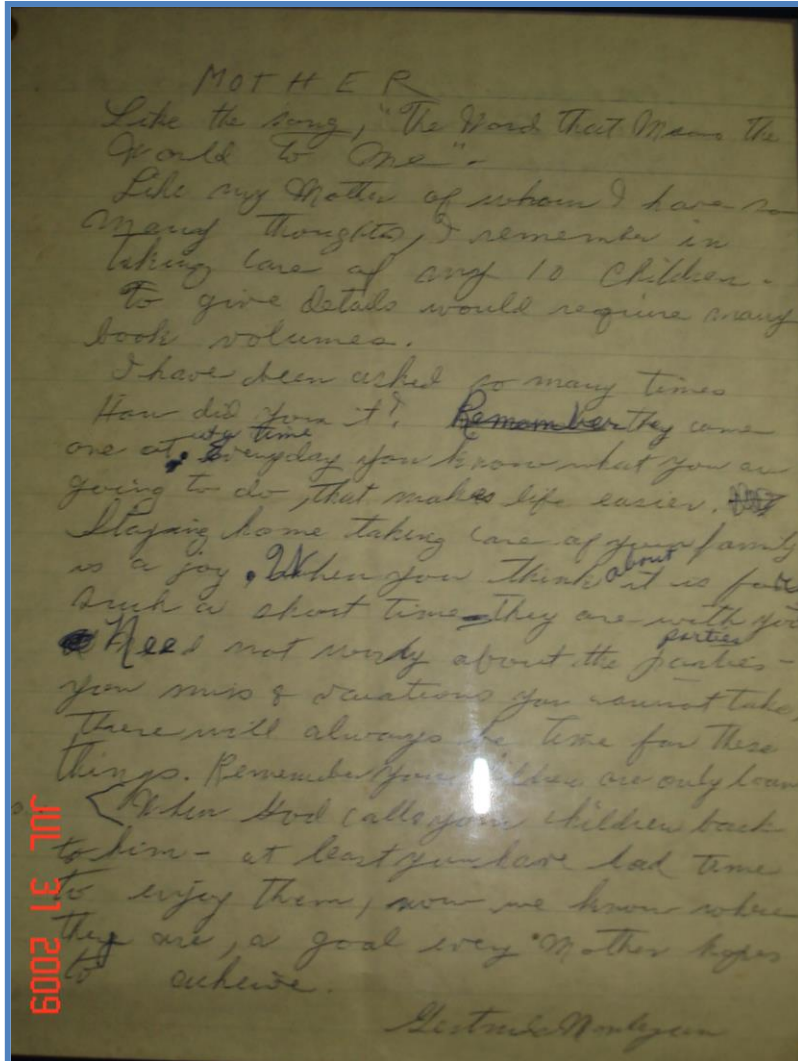 MOTHER
Like the song, "The Word That Means the
World to Me".
Like my Mother of whom I have so
many thoughts, I remember in
taking care of my 10 children.
To give details would require many
book volumes.
I have been asked so many times
How did you it? Remember they came
one at a time
. Everyday you know what you are
going to do, that makes life easier.
Staying home taking care of your family
is a joy. When you think about it is for
such a short time they are with you
Need not worry about the parties parties -
you miss & vacations you cannot take,
there will always be time for these
things. Remember your children are only loan
When God calls your children back
to him - at least you have had time
to enjoy them, now we know where
they are, a goal every Mother hopes
to acheive.
Gertrude
JUL 31 2009